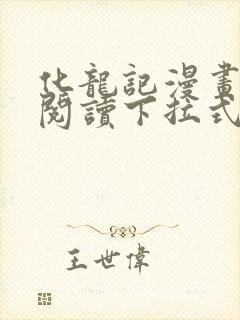 化龍記漫畫
閱讀下拉式
王世偉